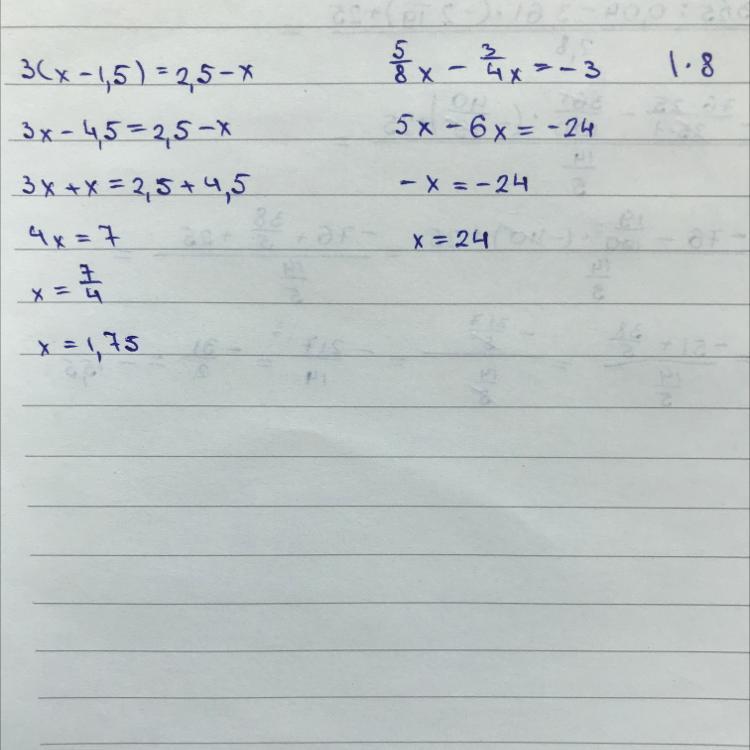 3(x - 1,5) = 2,5 - x
3x - 4,5 = 2,5 - x
3x + x = 2,5 + 4,5
4x = 7
x = 7/4
x = 1,75
5/8 x - 3/4 x = -3 | · 8
5x - 6x = -24
-x = -24
x = 24